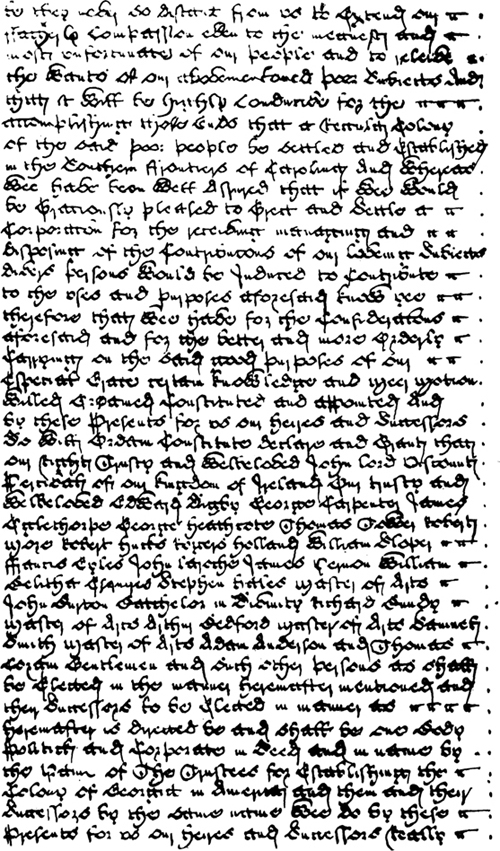 to they never so distant from us to Extend our
Fatherly Compassion even to the meanest and
most unfortunate of our people and to relieve
the wants of our abovementioned poor Subjects And
that it will be highly Conducive for the
accomplishing those Ends that a regular Colony
of the said poor people be settled and Established
in the Southern Frontiers of Carolina And Whereas
Wee have been Well Assured that if Wee Would
be Graciously pleased to Erect and Settle a
Corporation for the receiving managing and
disposing of the Contributions of our Loving Subjects
divers persons Would be Induced to Contribute
to the uses and purposes aforesaid Know yee
therefore that Wee have for the Considerations
aforesaid and for the better and more Orderly
Carrying on the said good purposes of our
Especial Grace certain Knowledge and meer motion
Willed Ordained Constituted and appointed And
by these Presents for us our Heires and Successors
Do Will Ordain Constitute declare and Grant that
our right Trusty and Welbeloved John Lord Viscount
Percivall of our Kingdom of Ireland Our trusty and
Welbeloved Edward Digby George Carpenter James
Oglethorpe George Heathcote Thomas Tower Robert
More Robert Hucks Rogers Holland William Sloper
Francis Eyles John Laroche James Vernon William
Belitha Stephen Hales Master of Arts
John Burton Batchelor in Divinity Richard Bundy
Master of Arts Arthur Bedford Master of Arts Samuel
Smith Master of Arts Adam Anderson and Thomas
Coram Gentlemen and such other persons as shall
be Elected in the manner hereinafter mentioned and
their Successors to be Elected in manner as
hereinafter is directed be and shall be one Body
Politick and Corporate in Deed and in name by
the Name of The Trustees for Establishing the
Colony of Georgia in America and them and their
Successors by the same name Wee do by these
Presents for us our Heires and Successors really